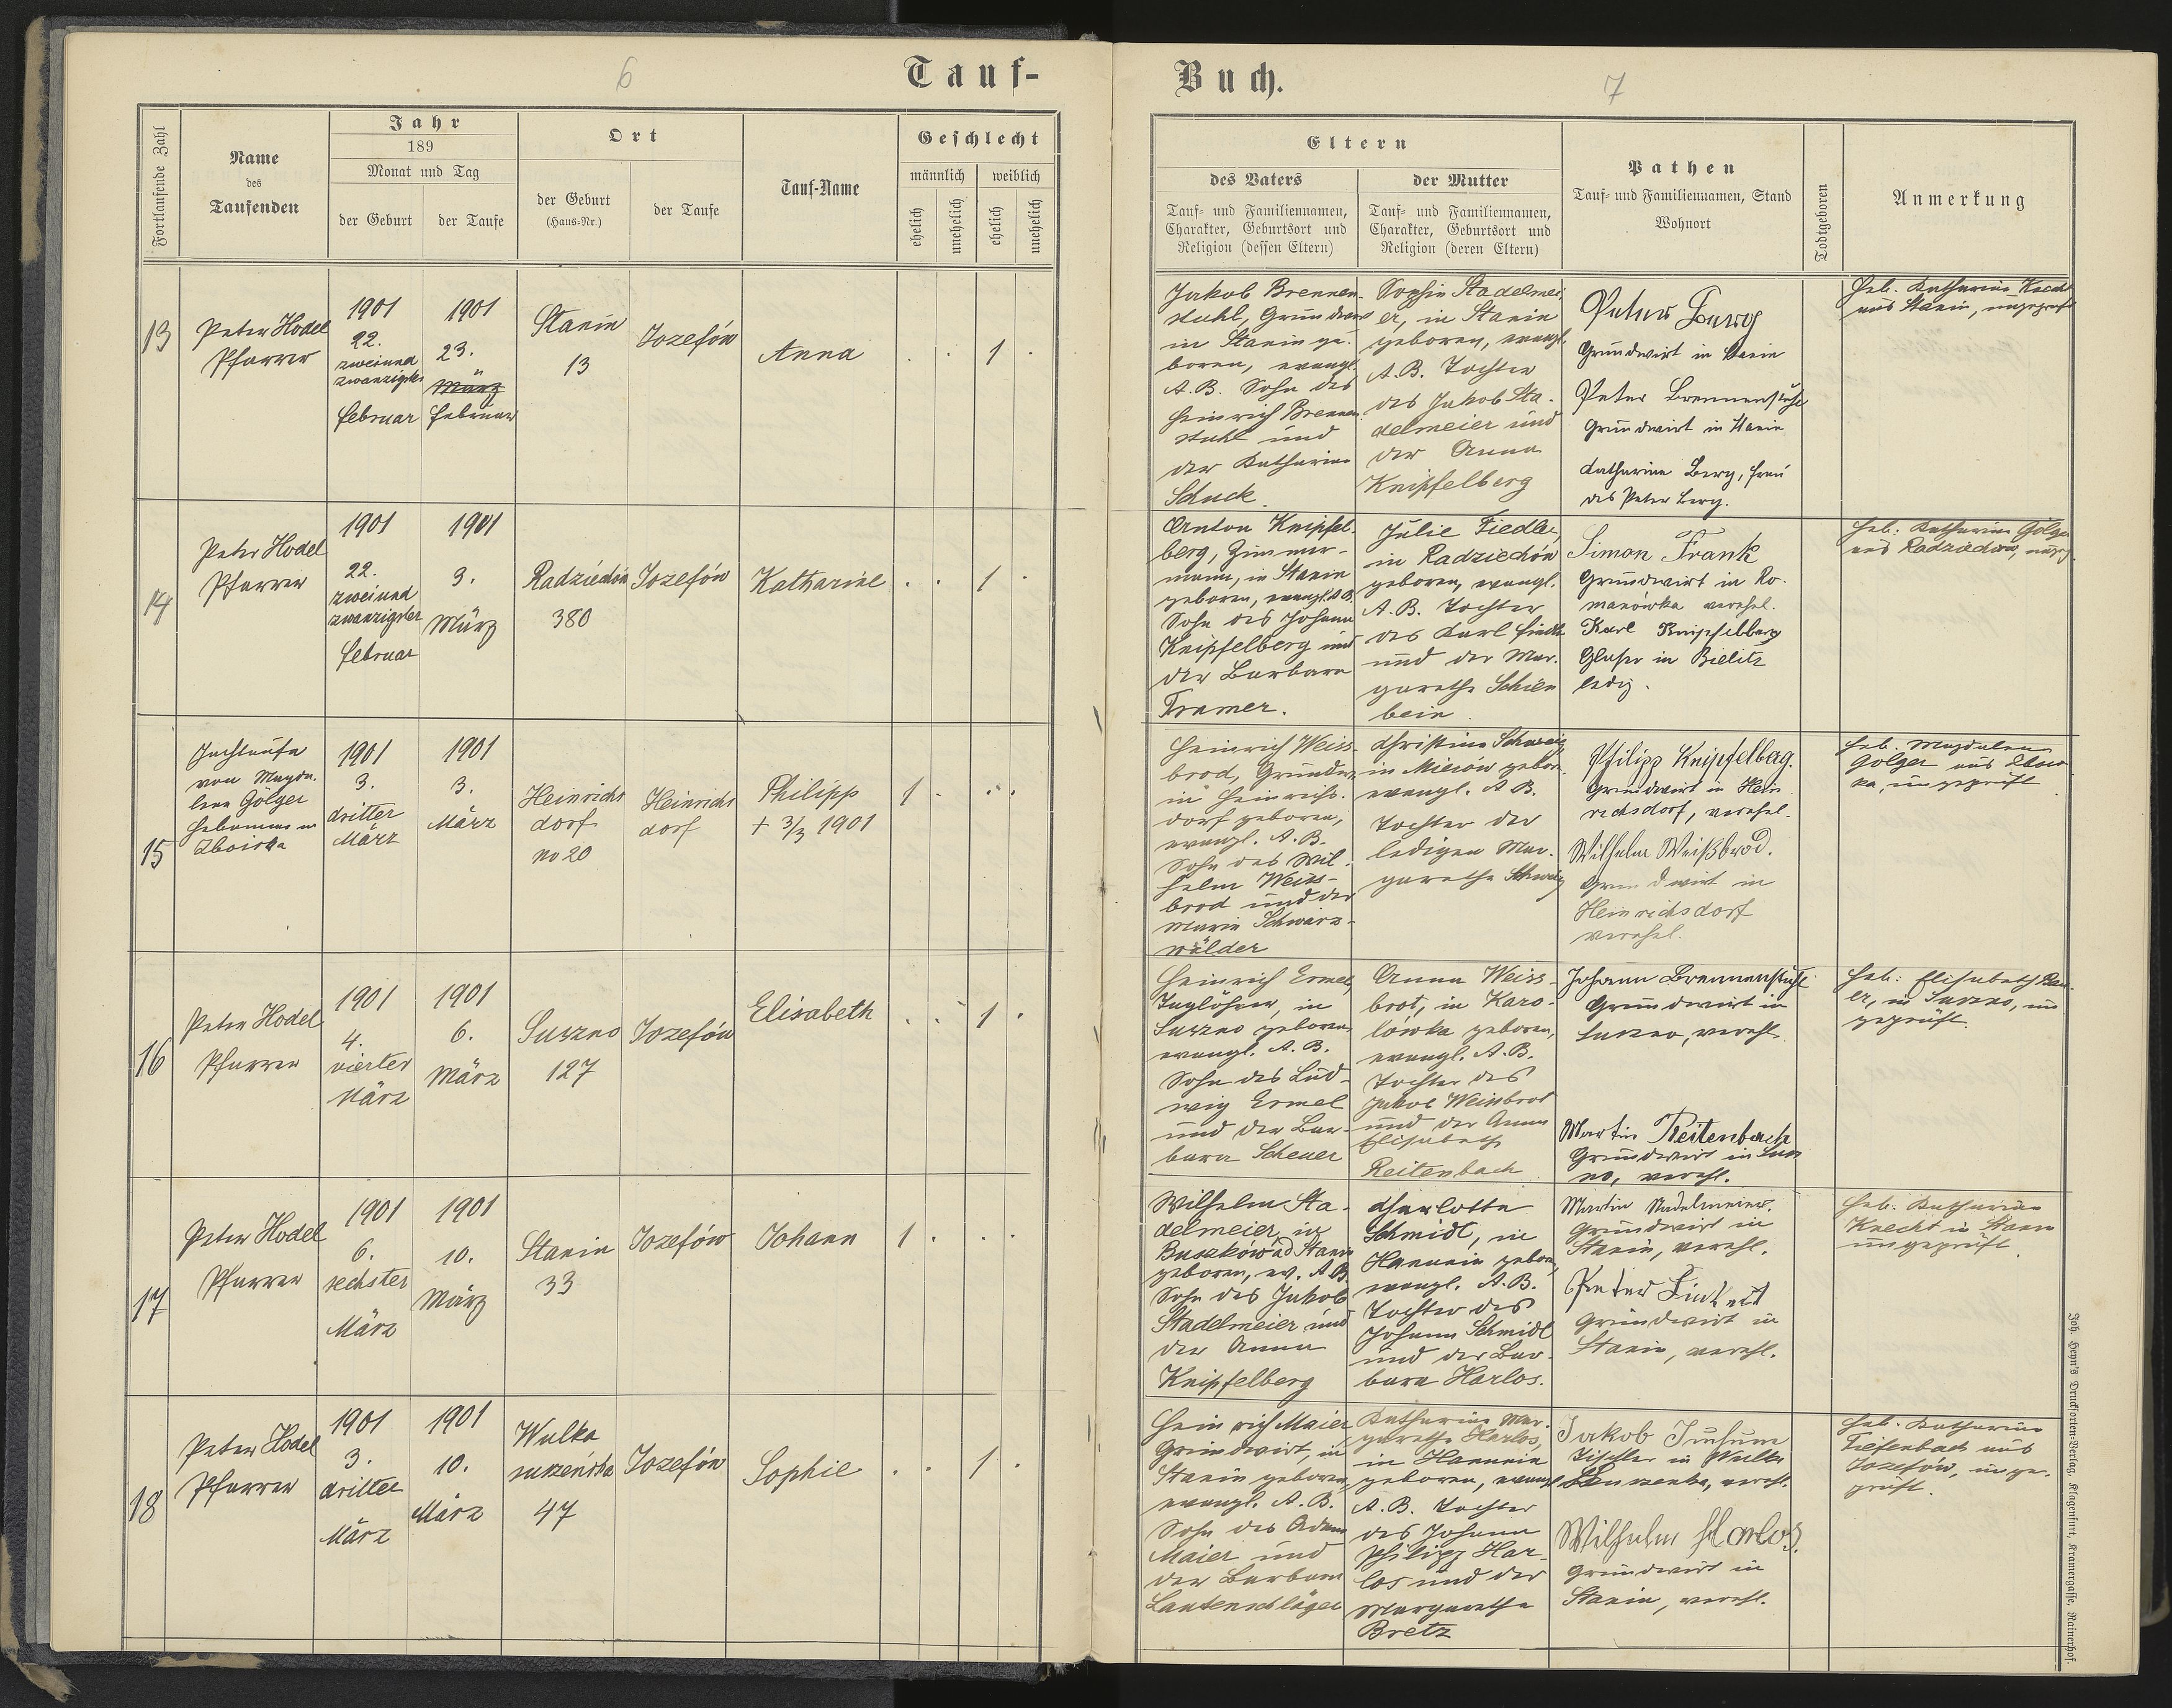 6
Tauf-
Fortlaufende Zahl
Name
des
Taufenden
Jahr
189
Monat und Tag
der Geburt
der Taufe
Ort
der Geburt
(Haus-Nr.)
der Taufe
Tauf-Name
Geschlecht
männlich
weiblich
ehelich
unehelich
ehelich
unehelich
13
Peter Hodel
Pfarrer
1901
22.
zweiund
zwanzigster
februar
1901
23.
März
februar
Stanin
13
Jozefów
Anna
. . 1 .
14
Peter Hodel
Pfarrer
1901
22.
zweiund
zwanzigster
februar
1901
3.
März
Radziechów
380
Jozefów
Katharine
. . 1 .
15
Jachtaufe
von Magda-
lena Gölger
Hebamme in
Zboiska
1901
3.
dritter
März
1901
3.
März
Heinrichs
dorf
no 20
Heinrichs
dorf
Philipp
+ 3/3 1901
1 . . .
16
Peter Hodel
Pfarrer
1901
4.
vierter
März
1901
6.
März
Suszno
127
Jozefów
Elisabeth
. . 1 .
17
Peter Hodel
Pfarrer
1901
6.
sechster
März
1901
10.
März
Stanin
33
Jozefów
Johann
1 . . .
18
Peter Hodel
Pfarrer
1901
3.
dritter
März
1901
10.
März
Wulka
suszeńska
47
Jozefów
Sophie
. . 1 .
Buch.
7
Eltern
des Vaters
Tauf- und Familiennamen,
Charakter, Geburtsort und
Religion (dessen Eltern)
der Mutter
Tauf- und Familiennamen,
Charakter, Geburtsort und
Religion (deren Eltern)
Pathen
Tauf- und Familiennamen, Stand
Wohnort
Todtgeboren
Anmerkung
Jakob Brennen-
stuhl, Grundwirt
in Stanin ge-
boren, evangl.
A.B. Sohn des
Heinrich Brennen
stuhl und
der Katharina
Schuck.
Sophie Stadelmei-
er, in Stanin
geboren, evangl.
A.B. Tochter
des Jakob Sta-
delmeier und
der Anna
Knipfelberg
Peter Berg
Grundwirt in Stanin
Peter Brennenstuhl
Grundwirt in Stanin
Katharina Berg, frau
des Peter Berg.
Heb. Katharina Knecht
aus Stanin, ungeprüft
Anton Knipfel-
berg, Zimmer-
mann, in Stanin
geboren, evangl. A.B.
Sohn des Johann
Knipfelberg und
der Barbara
Tramer.
Julie Fiedler,
in Radziechów
geboren, evangl.
A.B. Tochter
des Karl Fiedler
und der Mar-
garethe Schien
bein.
Simon Frank
Grundwirt in Ro-
manówka verehel.
Karl Knipfelberg
Glaser in Bielitz
ledig.
Heb. Katharina Gölger
aus Radziechów,
Heinrich Weiss
brod, Grundw.
in Heinrichs-
dorf geboren,
evangl. A.B.
Sohn des Wil-
helm Weiss-
brod und der
Marie Schwarz-
wälder
Christine Schweig
in Mierów gebor.
evangl. A.B.
Tochter der
ledigen Mar-
garethe Schweig
Philipp Knipfelberg.
Grundwirt in Hein
richsdorf, verehel.
Wilhelm Weißbrod.
Grundwirt in
Heinrichsdorf
verehel.
Heb. Magdalena
Gölger aus Zbois
ka, ungeprüft
Heinrich Ermel,
Taglöhner, in
Suszno geboren
evangl. A.B.
Sohn des Lud-
wig Ermel
und der Bar-
bara Scheuer
Anna Weiss-
brot, in Karo-
lówka geboren,
evangl. A.B.
Tochter des
Jakob Weissbrot
und der Anna
Elisabeth
Reitenbach
Johann Brennenstuhl
Grundwirt in
Suszno, verehl.
Martin Reitenbach
Grundwirt in Susz
no, verehl.
Heb. Elisabeth
er, in Suszno, un
geprüft.
Wilhelm Sta-
delmeier, in
Buszków ad Stanin
geboren, ev. A.B.
Sohn des Jakob
Stadelmeier und
der Anna
Knipfelberg
Charlotte
Schmidt, in
Hanunin geboren,
evangl. A.B.
Tochter des
Johann Schmidt
und der Bar-
bara Harlos.
Martin Stadelmeier.
Grundwirt in
Stanin, verehl.
Peter
Grundwirt in
Stanin, verehl.
Heb. Katharina
Knecht in Stanin
ungeprüft.
Heinrich Maier
Grundwirt, in
Stanin geboren,
evangl. A.B.
Sohn des Adam
Maier und
der Barbara
Lautenschläger
Katharina Mar-
garethe Harlos,
in Hanunin
geboren, evangl.
A.B. Tochter
des Johann
Philipp Har-
los und der
Margarethe
Bretz
Jakob
Tischler in Wulka
Suszenska, verehl.
Wilhelm Harlos.
Grundwirt in
Stanin, verehl.
Heb. Katharina
Tiefenbach aus
Jozefów, unge-
prüft.
Joh. Heyn's Drucksorten-Verlag, Klagenfurt, Kramergasse, Rainerhof.